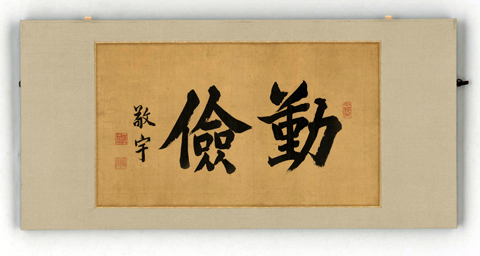 勤儉
敬宇